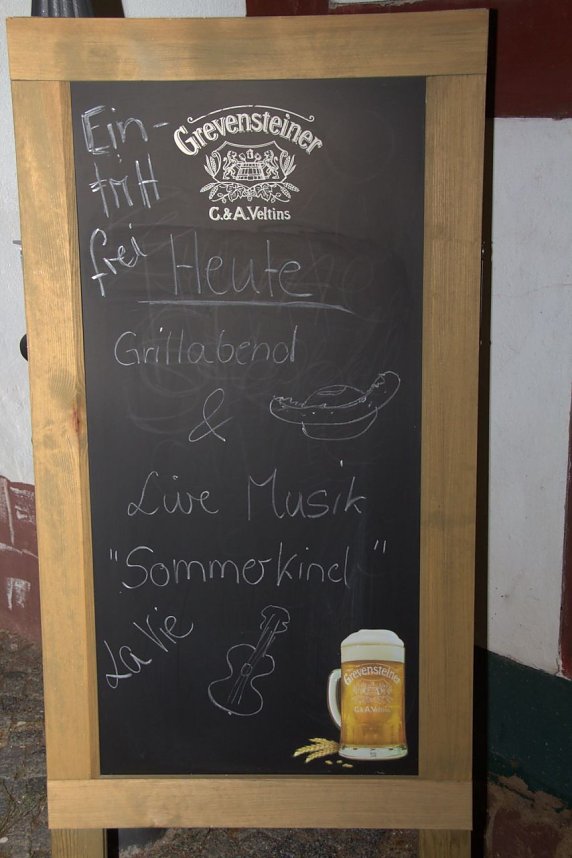 Grevensteiner
C.&A.Veltins
Ein-
tritt
frei
Heute
Grillabend
&
Live Musik
"Sommerkind"
La Vie
Grevensteiner
C.&A.Veltins